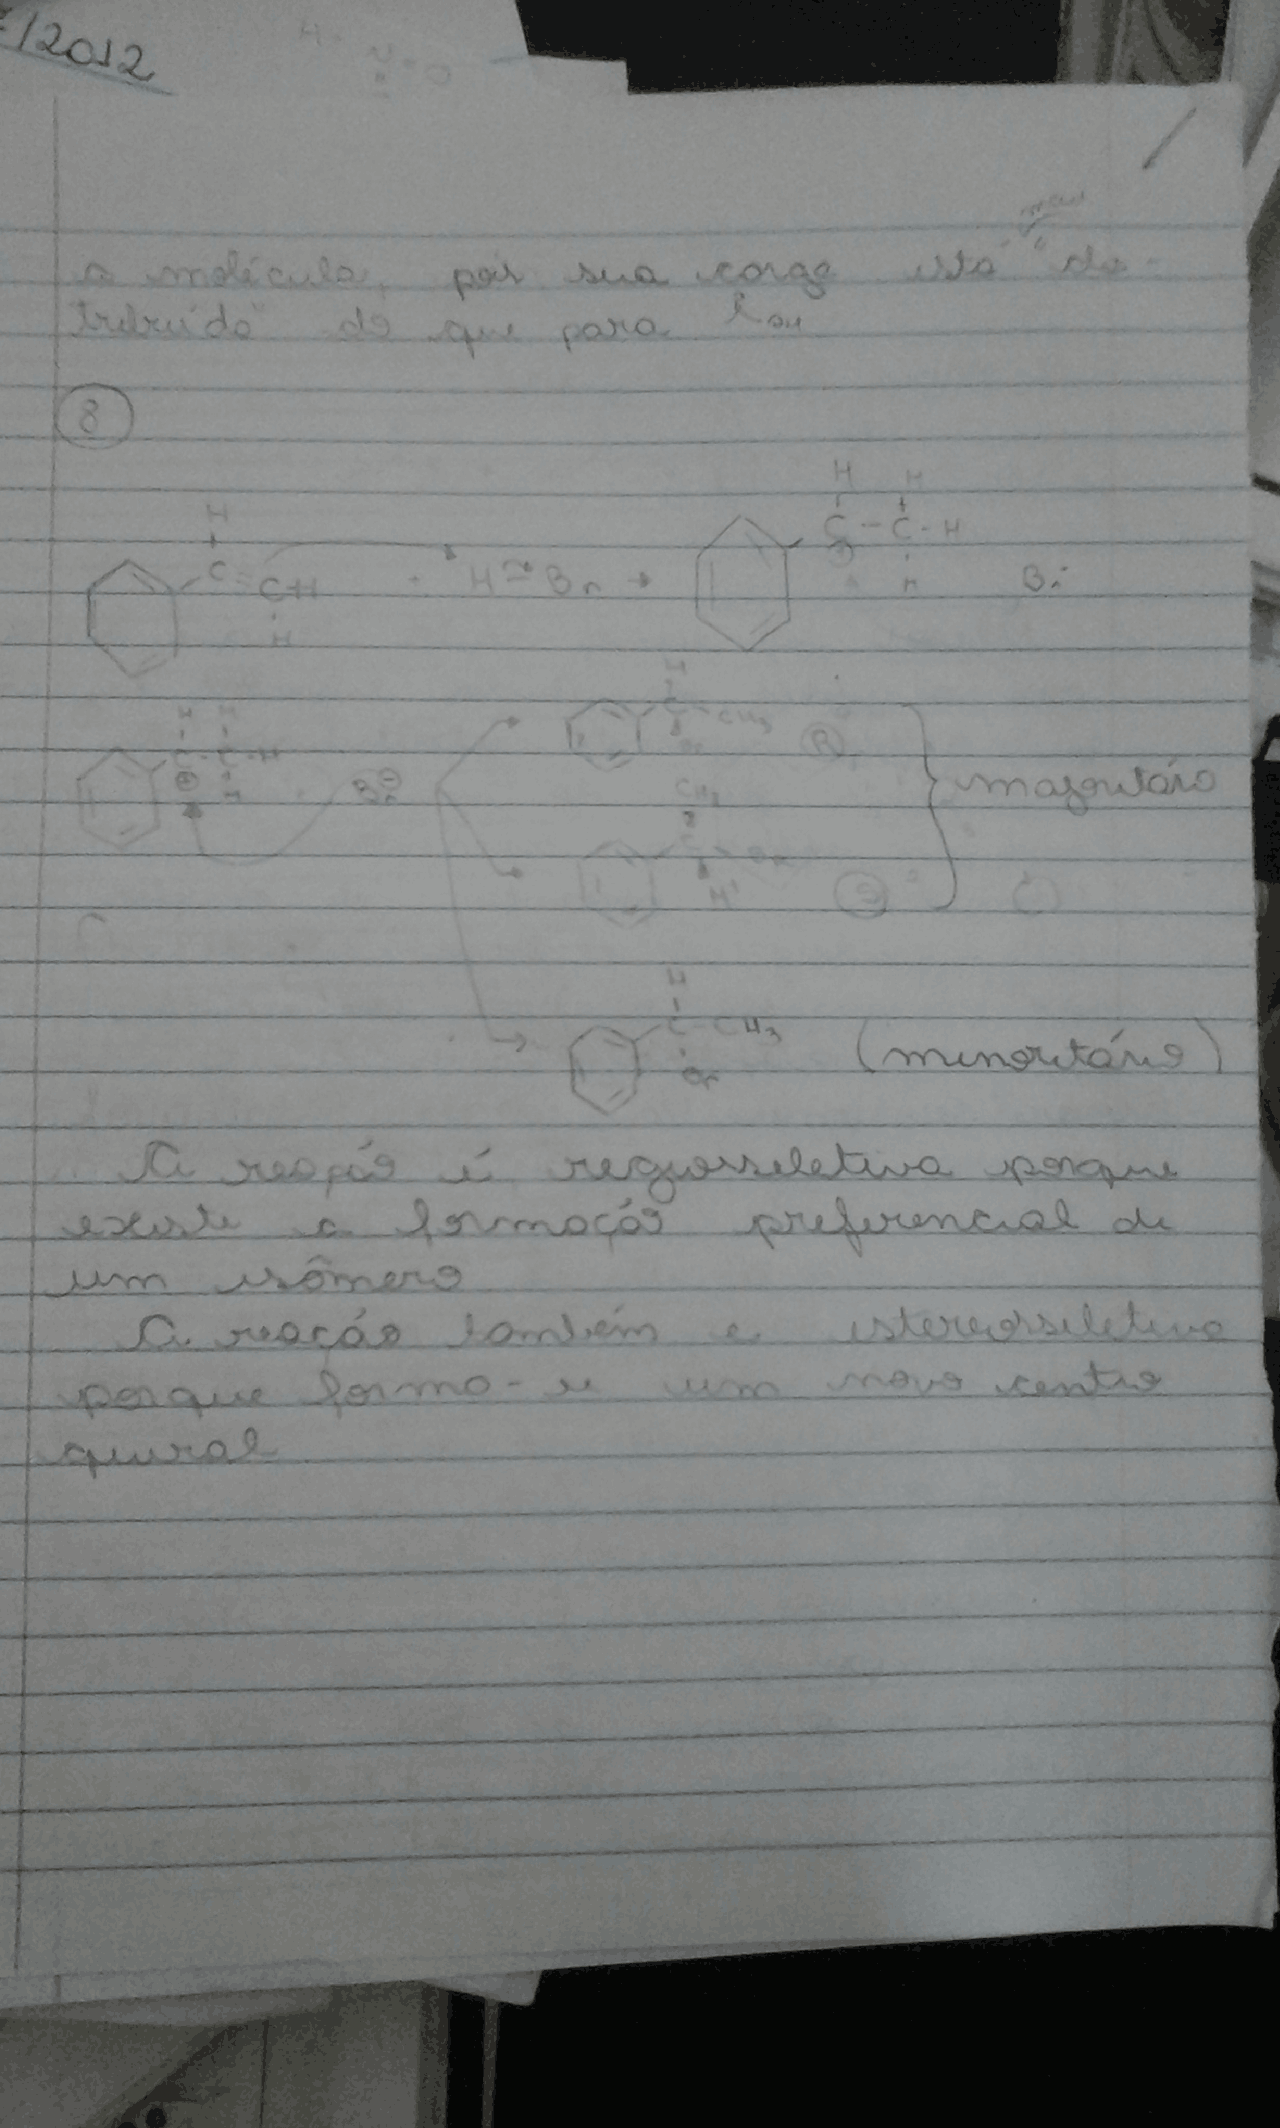 /2012
mais
a molécula, pois sua carga está "dis-
tribuída" do que para
8
H H H
C = CH + H - Br → C - C - H Br
H H
H H H
C - C - H Br C - CH3 R
H Br
CH3 majoritário
C Br
H S
H
C - CH3 (minoritário)
Br
A reação é regiosseletiva porque
existe a formação preferencial de
um isômero
A reação também e estereosseletiva
porque forma-se um novo centro
quiral